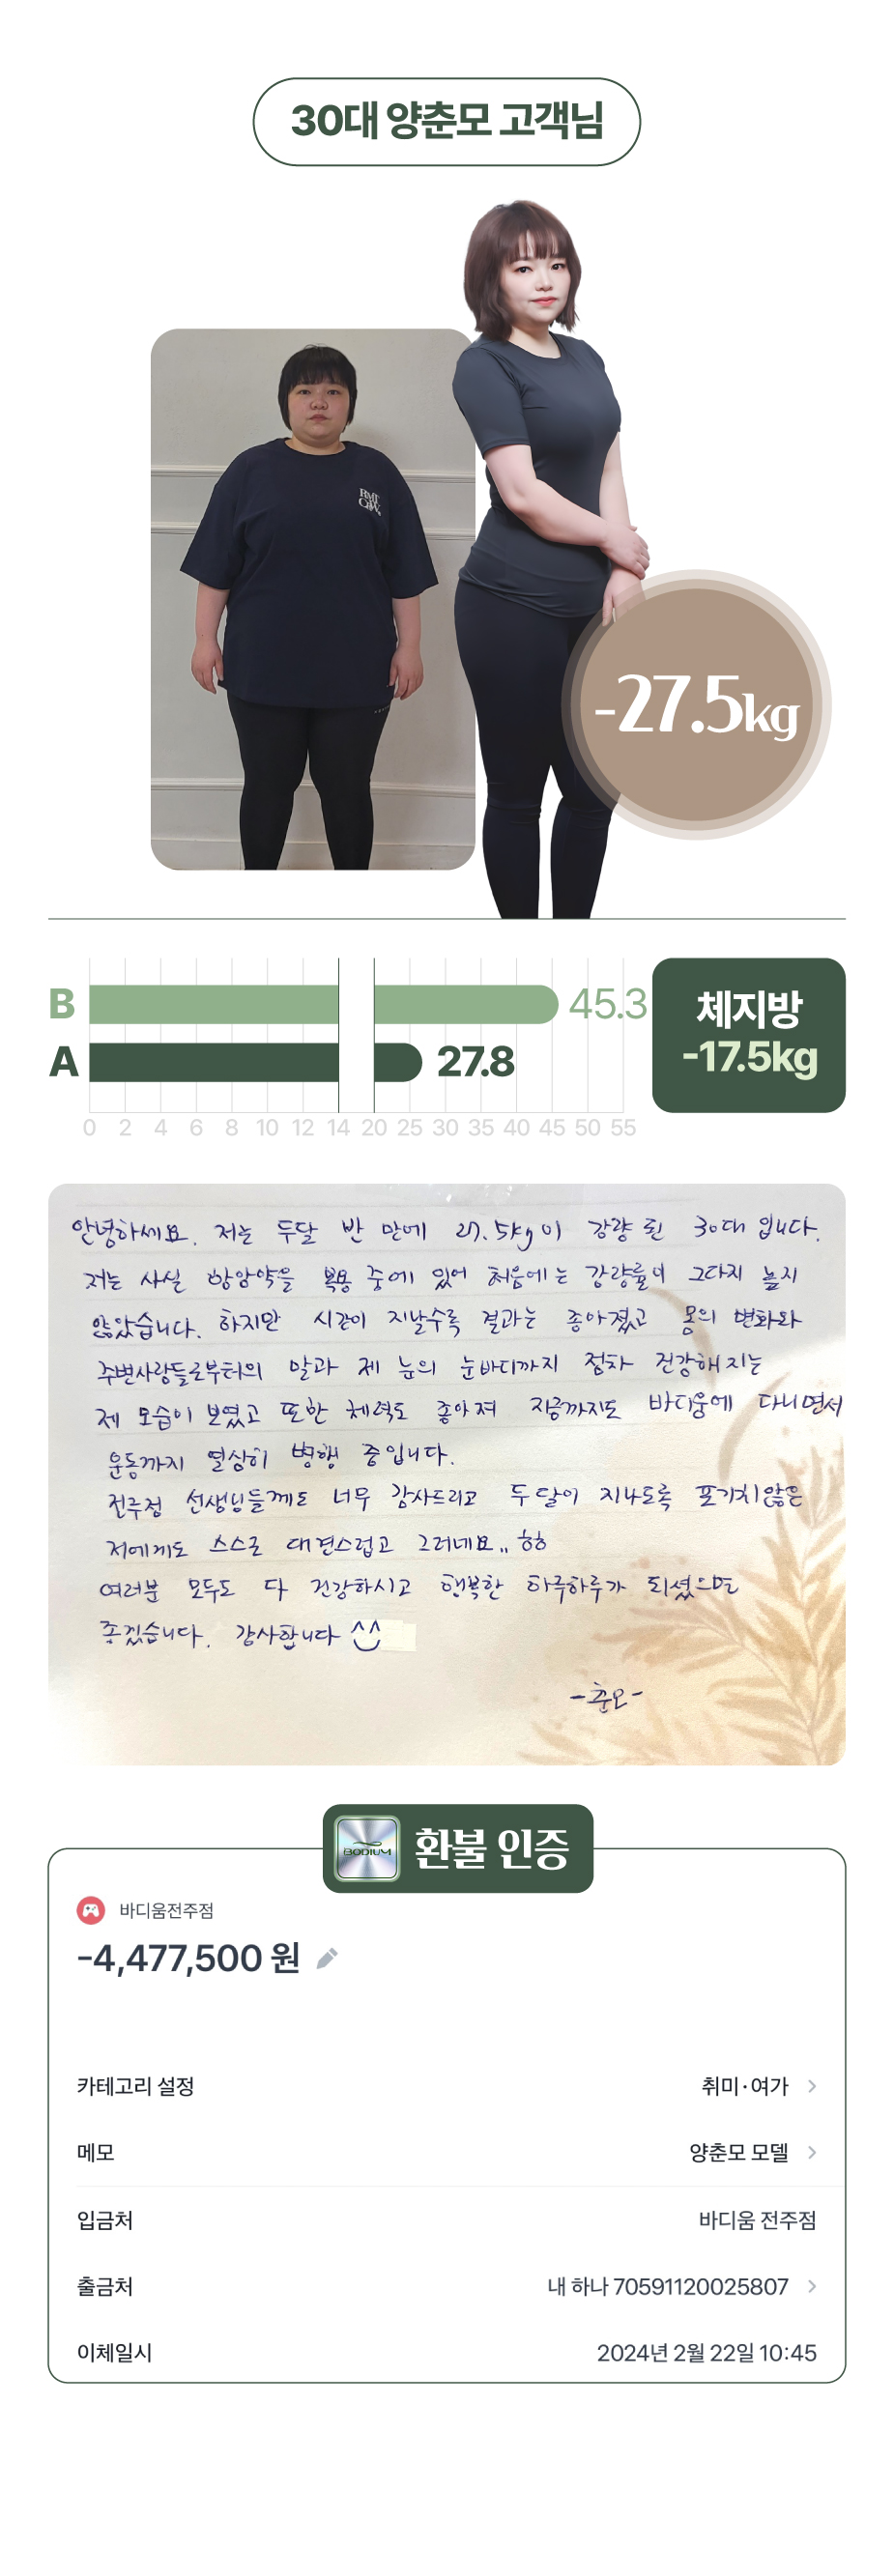 30대 양춘모 고객님
-27.5kg
B 45.3
A 27.8
0 2 4 6 8 10 12 14 20 25 30 35 40 45 50 55
체지방
-17.5kg
안녕하세요. 저는 두달 반 만에 27.5kg이 감량 된 30대 입니다.
저는 사실 항암약을 복용 중에 있어 처음에는 감량률이 그다지 높지
않았습니다. 하지만 시간이 지날수록 결과는 좋아졌고 몸의 변화와
주변사람들로부터의 말과 제 눈의 눈바디까지 점차 건강해지는
제 모습이 보였고 또한 체력도 좋아져 지금까지도 바디움에 다니면서
운동까지 열심히 병행 중입니다.
전주점 선생님들께도 너무 감사드리고 두달이 지나도록 포기치않은
저에게도 스스로 대견스럽고 그러네요,, ㅎㅎ
여러분 모두도 다 건강하시고 행복한 하루하루가 되셨으면
좋겠습니다. 감사합니다 ^^
-춘모-
BODIUM 환불 인증
바디움전주점
-4,477,500 원
카테고리 설정 취미·여가
메모 양춘모 모델
입금처 바디움 전주점
출금처 내 하나 70591120025807
이체일시 2024년 2월 22일 10:45